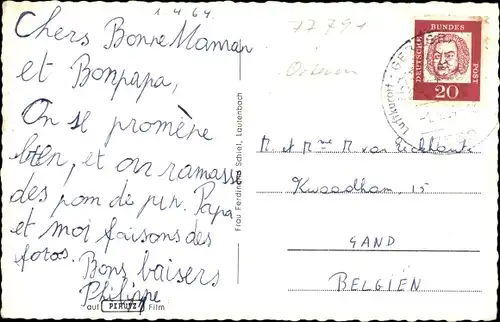 1 4 64
Chers Bonne Maman
et Bonpapa,
On se promène
bien, et on ramasse
des pom de pin. Papa
et moi faisons des
fotos.
Bons baisers
Philippe
auf PERUTZ Film
Frau Ferdinand Lautenbach
77791
DEUTSCHE BUNDES POST
20
Luftkurort
M et Mme M van
Kwaadham, 15
GAND
BELGIEN